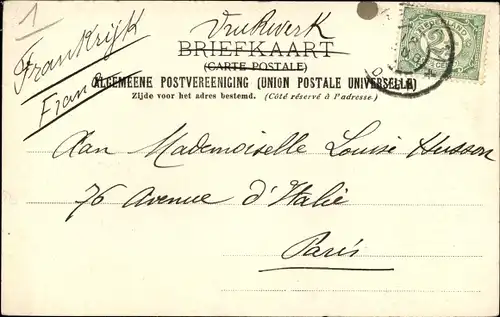 1
Drukwerk
Frankrijk
BRIEFKAART
(CARTE POSTALE)
ALGEMEENE POSTVEREENIGING (UNION POSTALE UNIVERSELLE)
Zijde voor het adres bestemd. (Côté réservé à l'adresse.)
Aan Mademoiselle Louise Husson
76 Avenue d'Italie
Paris